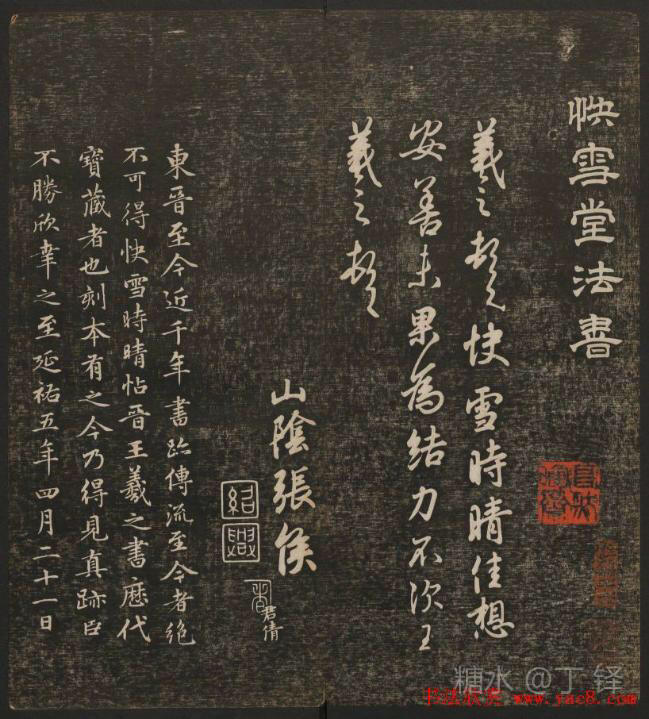 快雪堂法書
羲之頓首快雪時晴佳想
安善未果為結力不次王
羲之頓首
山陰張侯
紹興
君倩
東晉至今近千年書跡傳流至今者絕
不可得快雪時晴帖晉王羲之書歷代
寶藏者也刻本有之今乃得見真跡臣
不勝欣幸之至延祐五年四月二十一日
糖水 @丁铎
书法欣赏 www.yac8.com